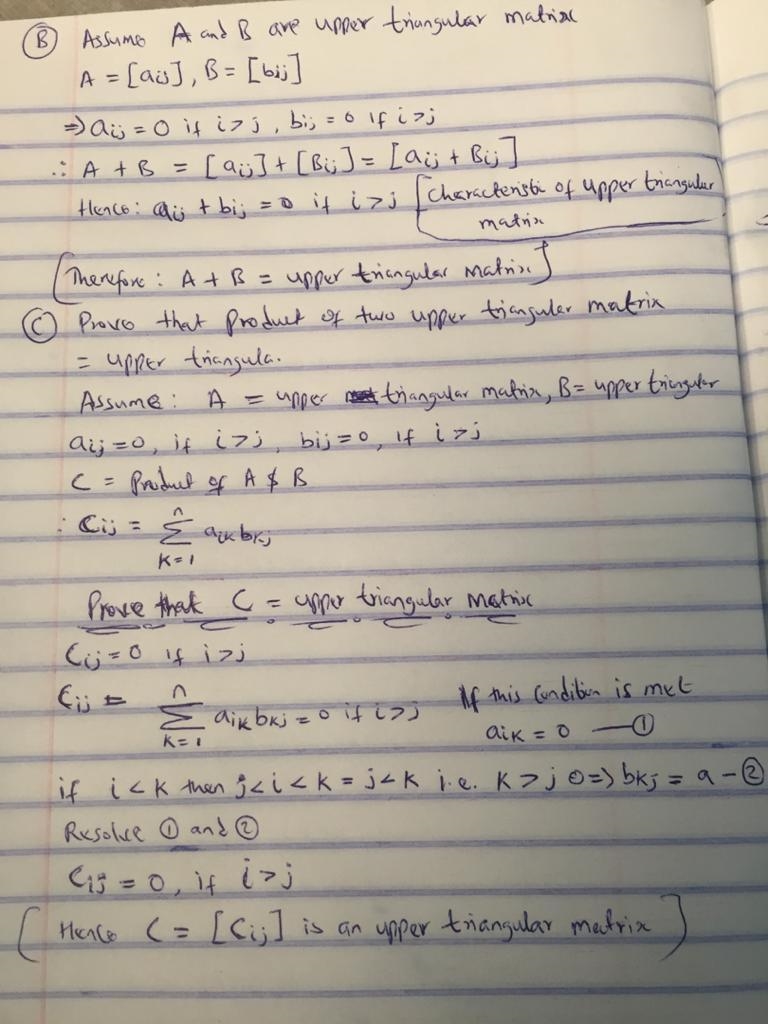 Ⓑ Assume A and B are upper triangular matrix
A = [aij], B = [bij]
⇒ aij = 0 if i > j, bij = 0 if i > j
∴ A + B = [aij] + [Bij] = [aij + Bij]
Hence: aij + bij = 0 if i > j [Characteristic of upper triangular
matrix
[Therefore: A + B = upper triangular matrix]
Ⓒ Prove that Product of two upper triangular matrix
= upper triangula.
Assume: A = upper triangular matrix, B = upper triangular
aij = 0, if i > j, bij = 0, if i > j
C = Product of A & B
∴ Cij = n∑k=1 aik bkj
Prove that C = upper triangular matrix
Cij = 0 if i > j
Cij = n∑k=1 aik bkj = 0 if i > j If this condition is met
aik = 0 —①
if i < k then j < i < k = j < k i.e. k > j ⇒ bkj = a - ②
Resolve ① and ②
Cij = 0, if i > j
[Hence C = [Cij] is an upper triangular matrix]